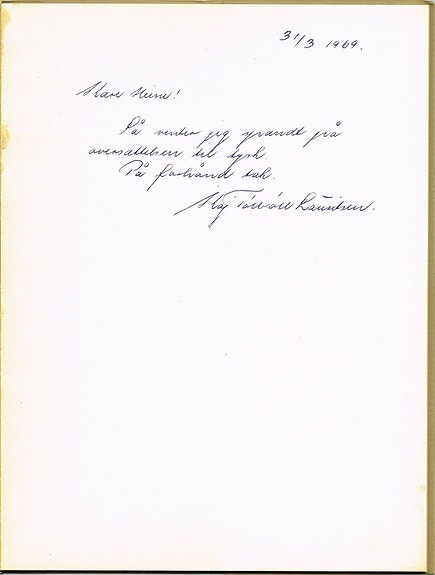 31/3 1969.
Kære Heine!
Så venter jeg spændt på
oversættelsen til tysk.
På forhånd tak.
Kaj Lauritsen.